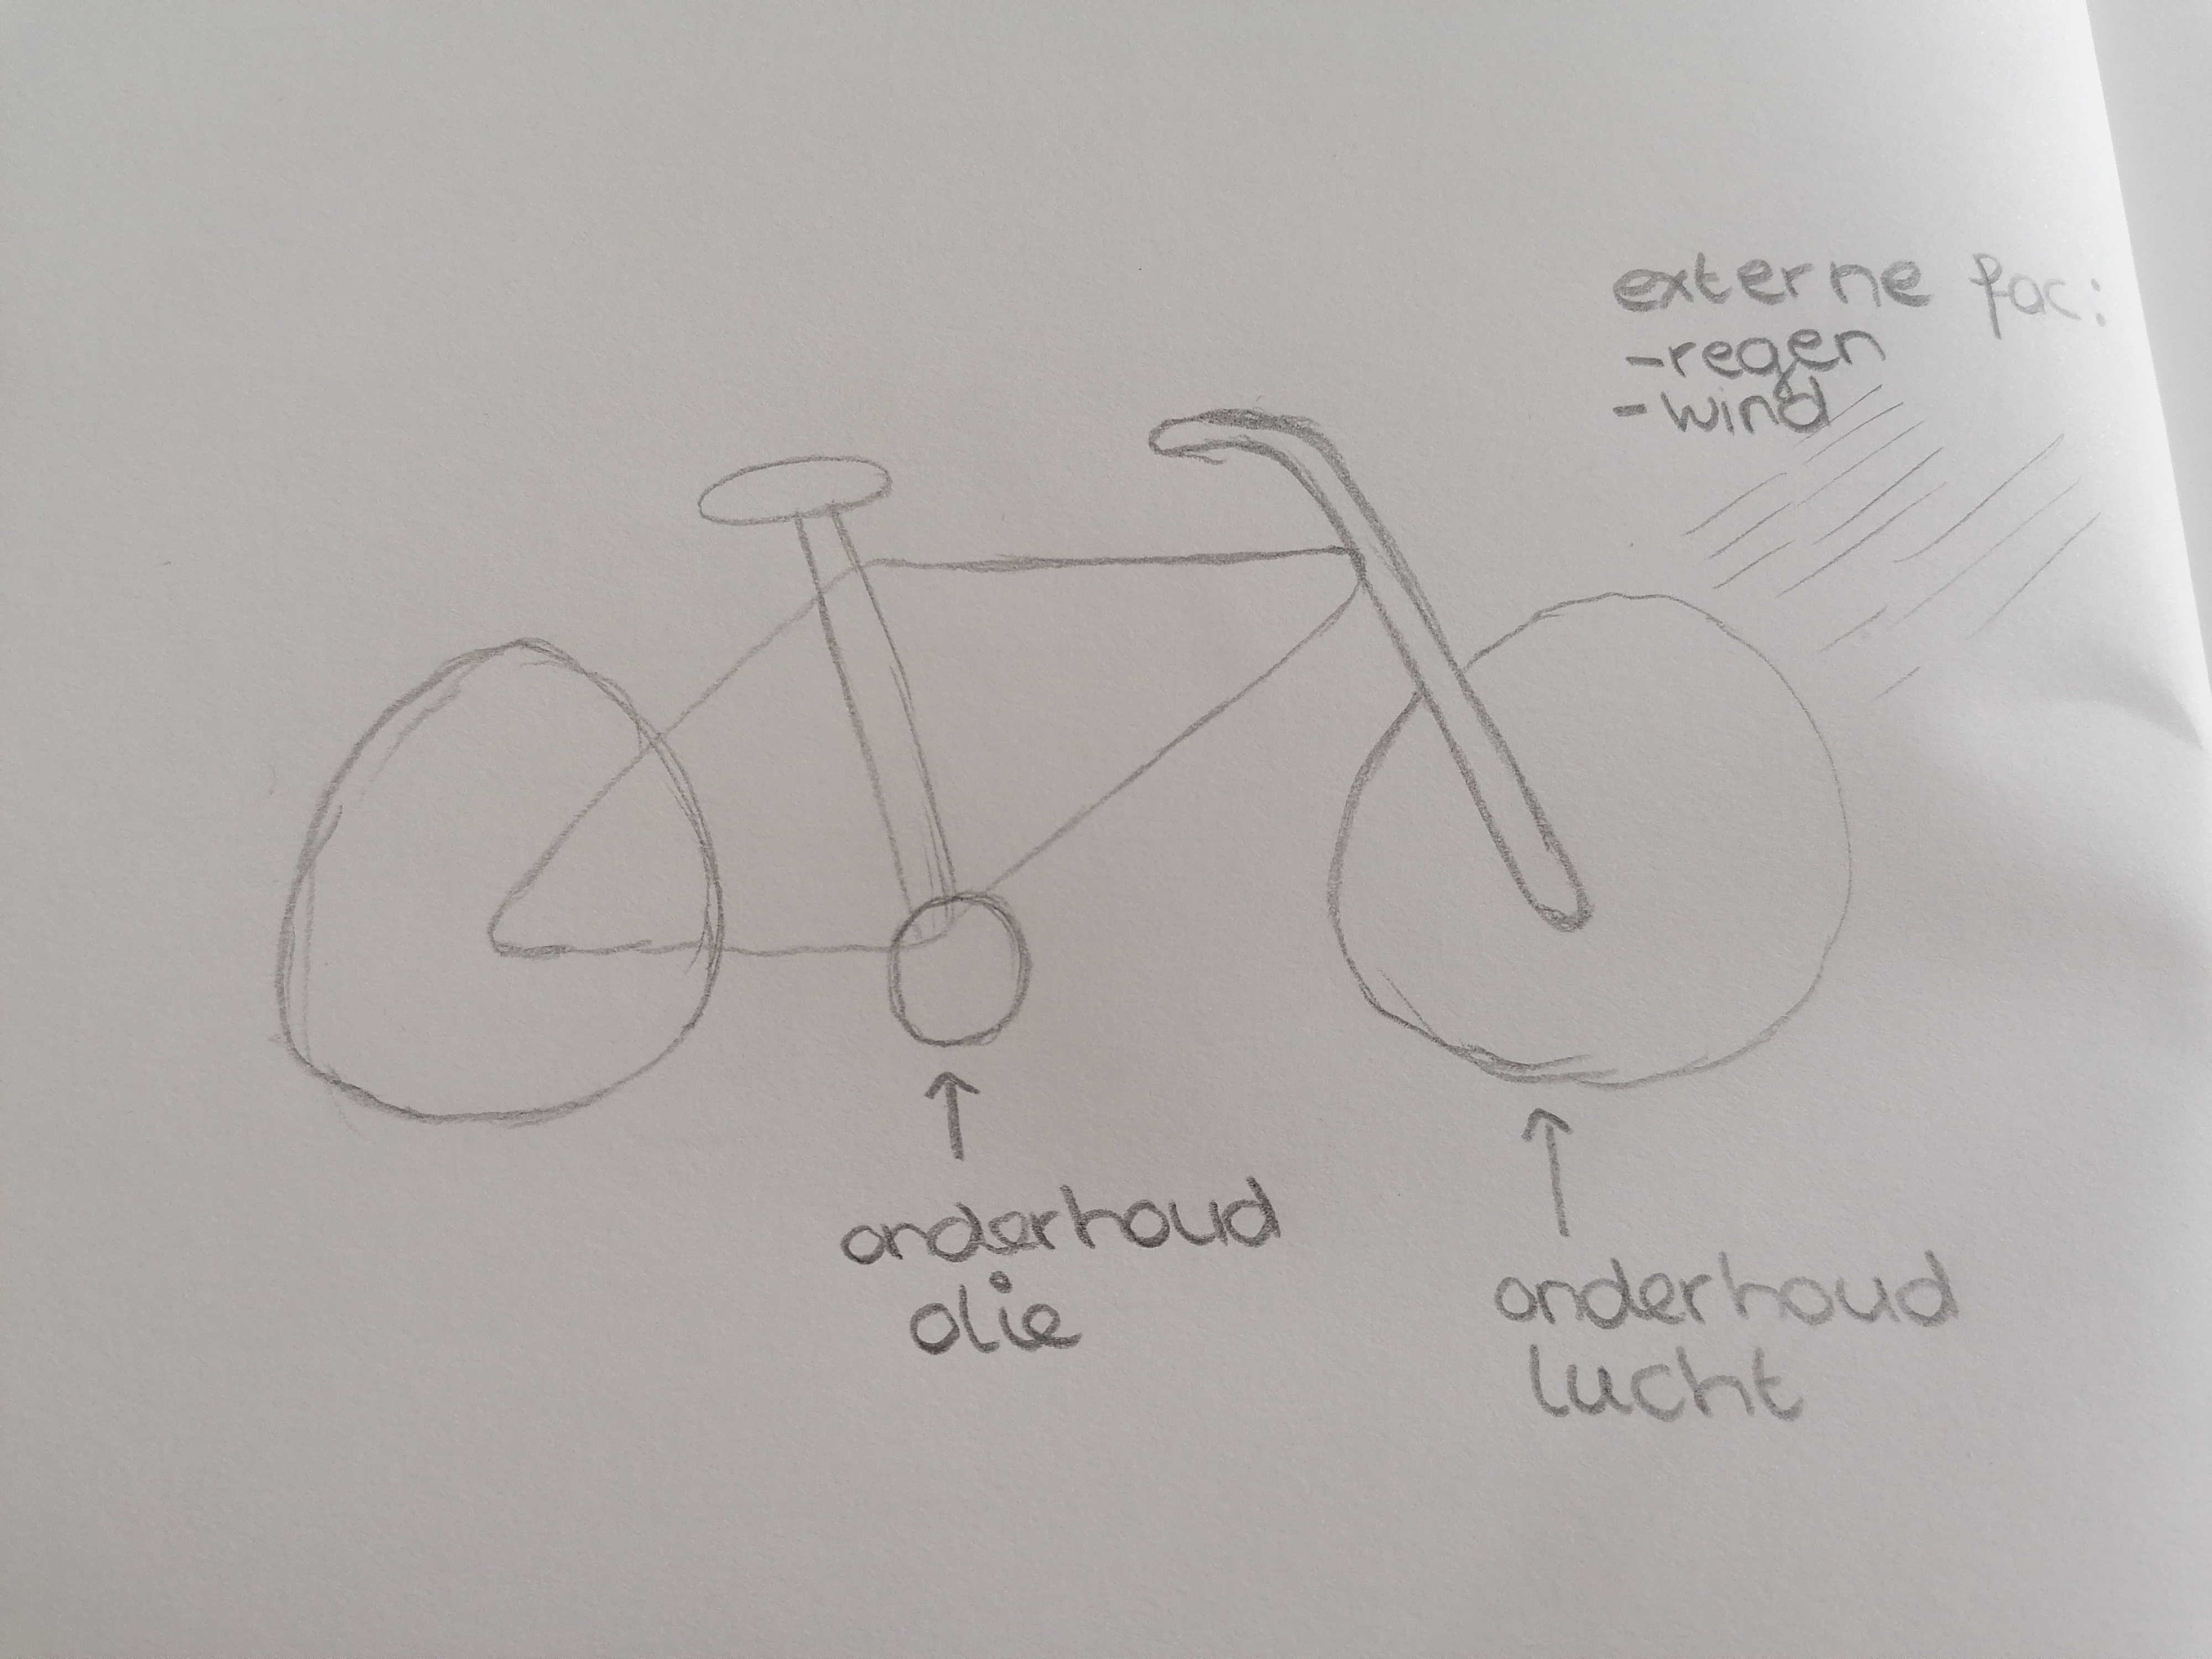 externe fac:
-regen
-wind
onderhoud
olie
onderhoud
lucht